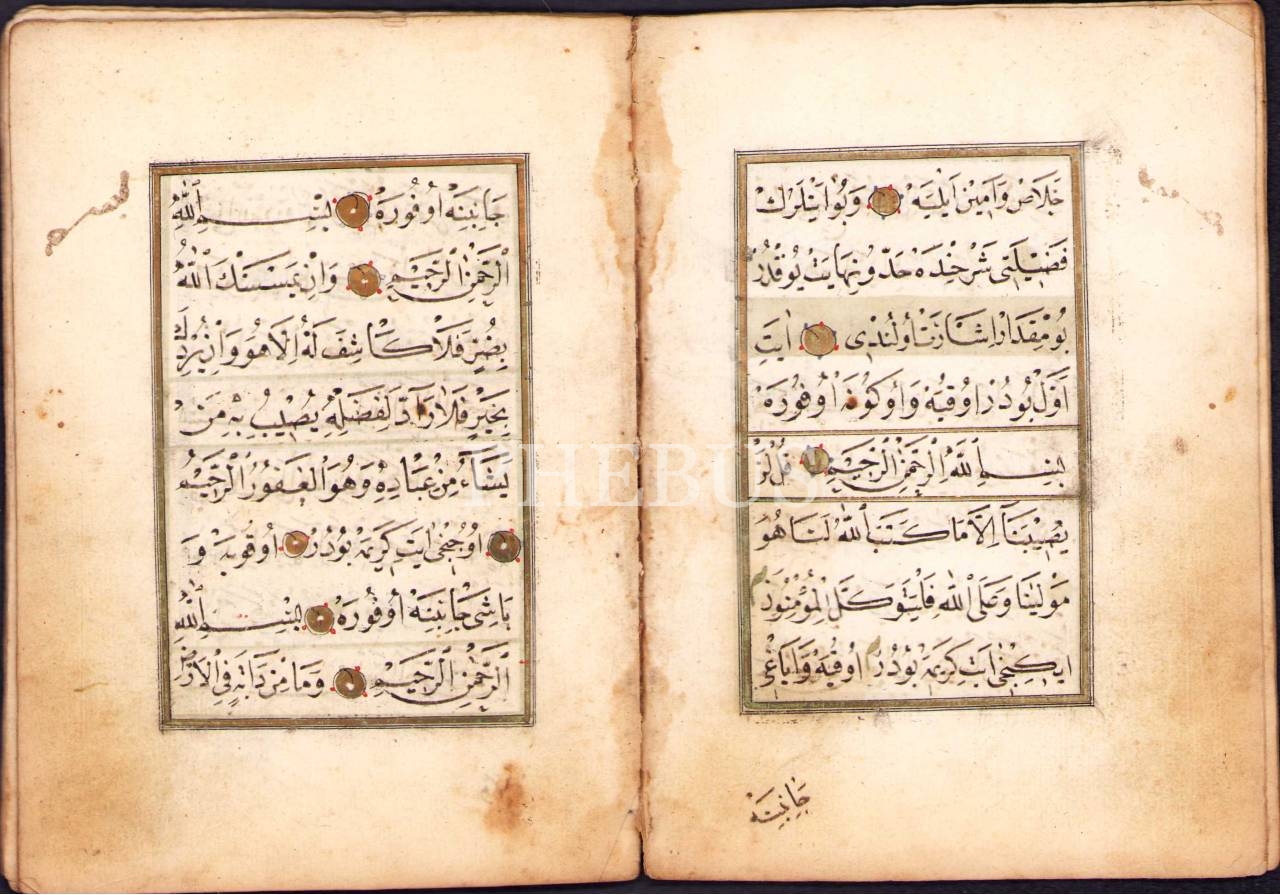 خَلَاصْ وَاَمِينْ اَيْلَيَهْ وَبُو اٰيَتْلَرِكْ
فَضِيلَتِى شَرْحِنْدَهْ حَدّ وُنِهَايَتْ يُوقْدُرْ
بُو مِقْدَارْ اِشَارَتْ اُولُنْدِى اٰيَتِ
اَوَّلْ بُودُرْ اوُقِيَهْ وَاوُكُونَهْ اوُفُورَهْ
بِسْــــمِ اللّٰهِ الرَّحْمٰنِ الرَّحِيمِ قُلْ لَنْ
يُصِيبَنَآ اِلَّا مَا كَتَبَ اللّٰهُ لَنَا هُوَ
مَوْلٰينَا وَعَلَى اللّٰهِ فَلْيَتَوَكَّلِ الْمُؤْمِنُونَ
ايكِنْجِى اٰيَتِ كَرِيمَهْ بُودُرْ اوُقِيَهْ وَاَيَاغِى
جَانِبِنَهْ
جَانِبِنَهْ اوُفُورَهْ بِسْــــمِ اللّٰهِ
الرَّحْمٰنِ الرَّحِيمِ وَاِنْ يَمْسَسْكَ اللّٰهُ
بِضُرٍّ فَلَا كَاشِفَ لَهُ اِلَّا هُوَ وَاِنْ يُرِدْكَ
بِخَيْرٍ فَلَا رَآدَّ لِفَضْلِهِ يُصِيبُ بِهِ مَنْ
يَشَآءُ مِنْ عِبَادِهِ وَهُوَ الْغَفُورُ الرَّحِيمُ
اوُچُنْجِى اٰيَتِ كَرِيمَهْ بُودُرْ اوُقُويَهْ وَ
بَاشِى جَانِبِنَهْ اوُفُورَهْ بِسْــــمِ اللّٰهِ
الرَّحْمٰنِ الرَّحِيمِ وَمَا مِنْ دَآبَّةٍ فِى الْاَرْضِ
PHEBUS